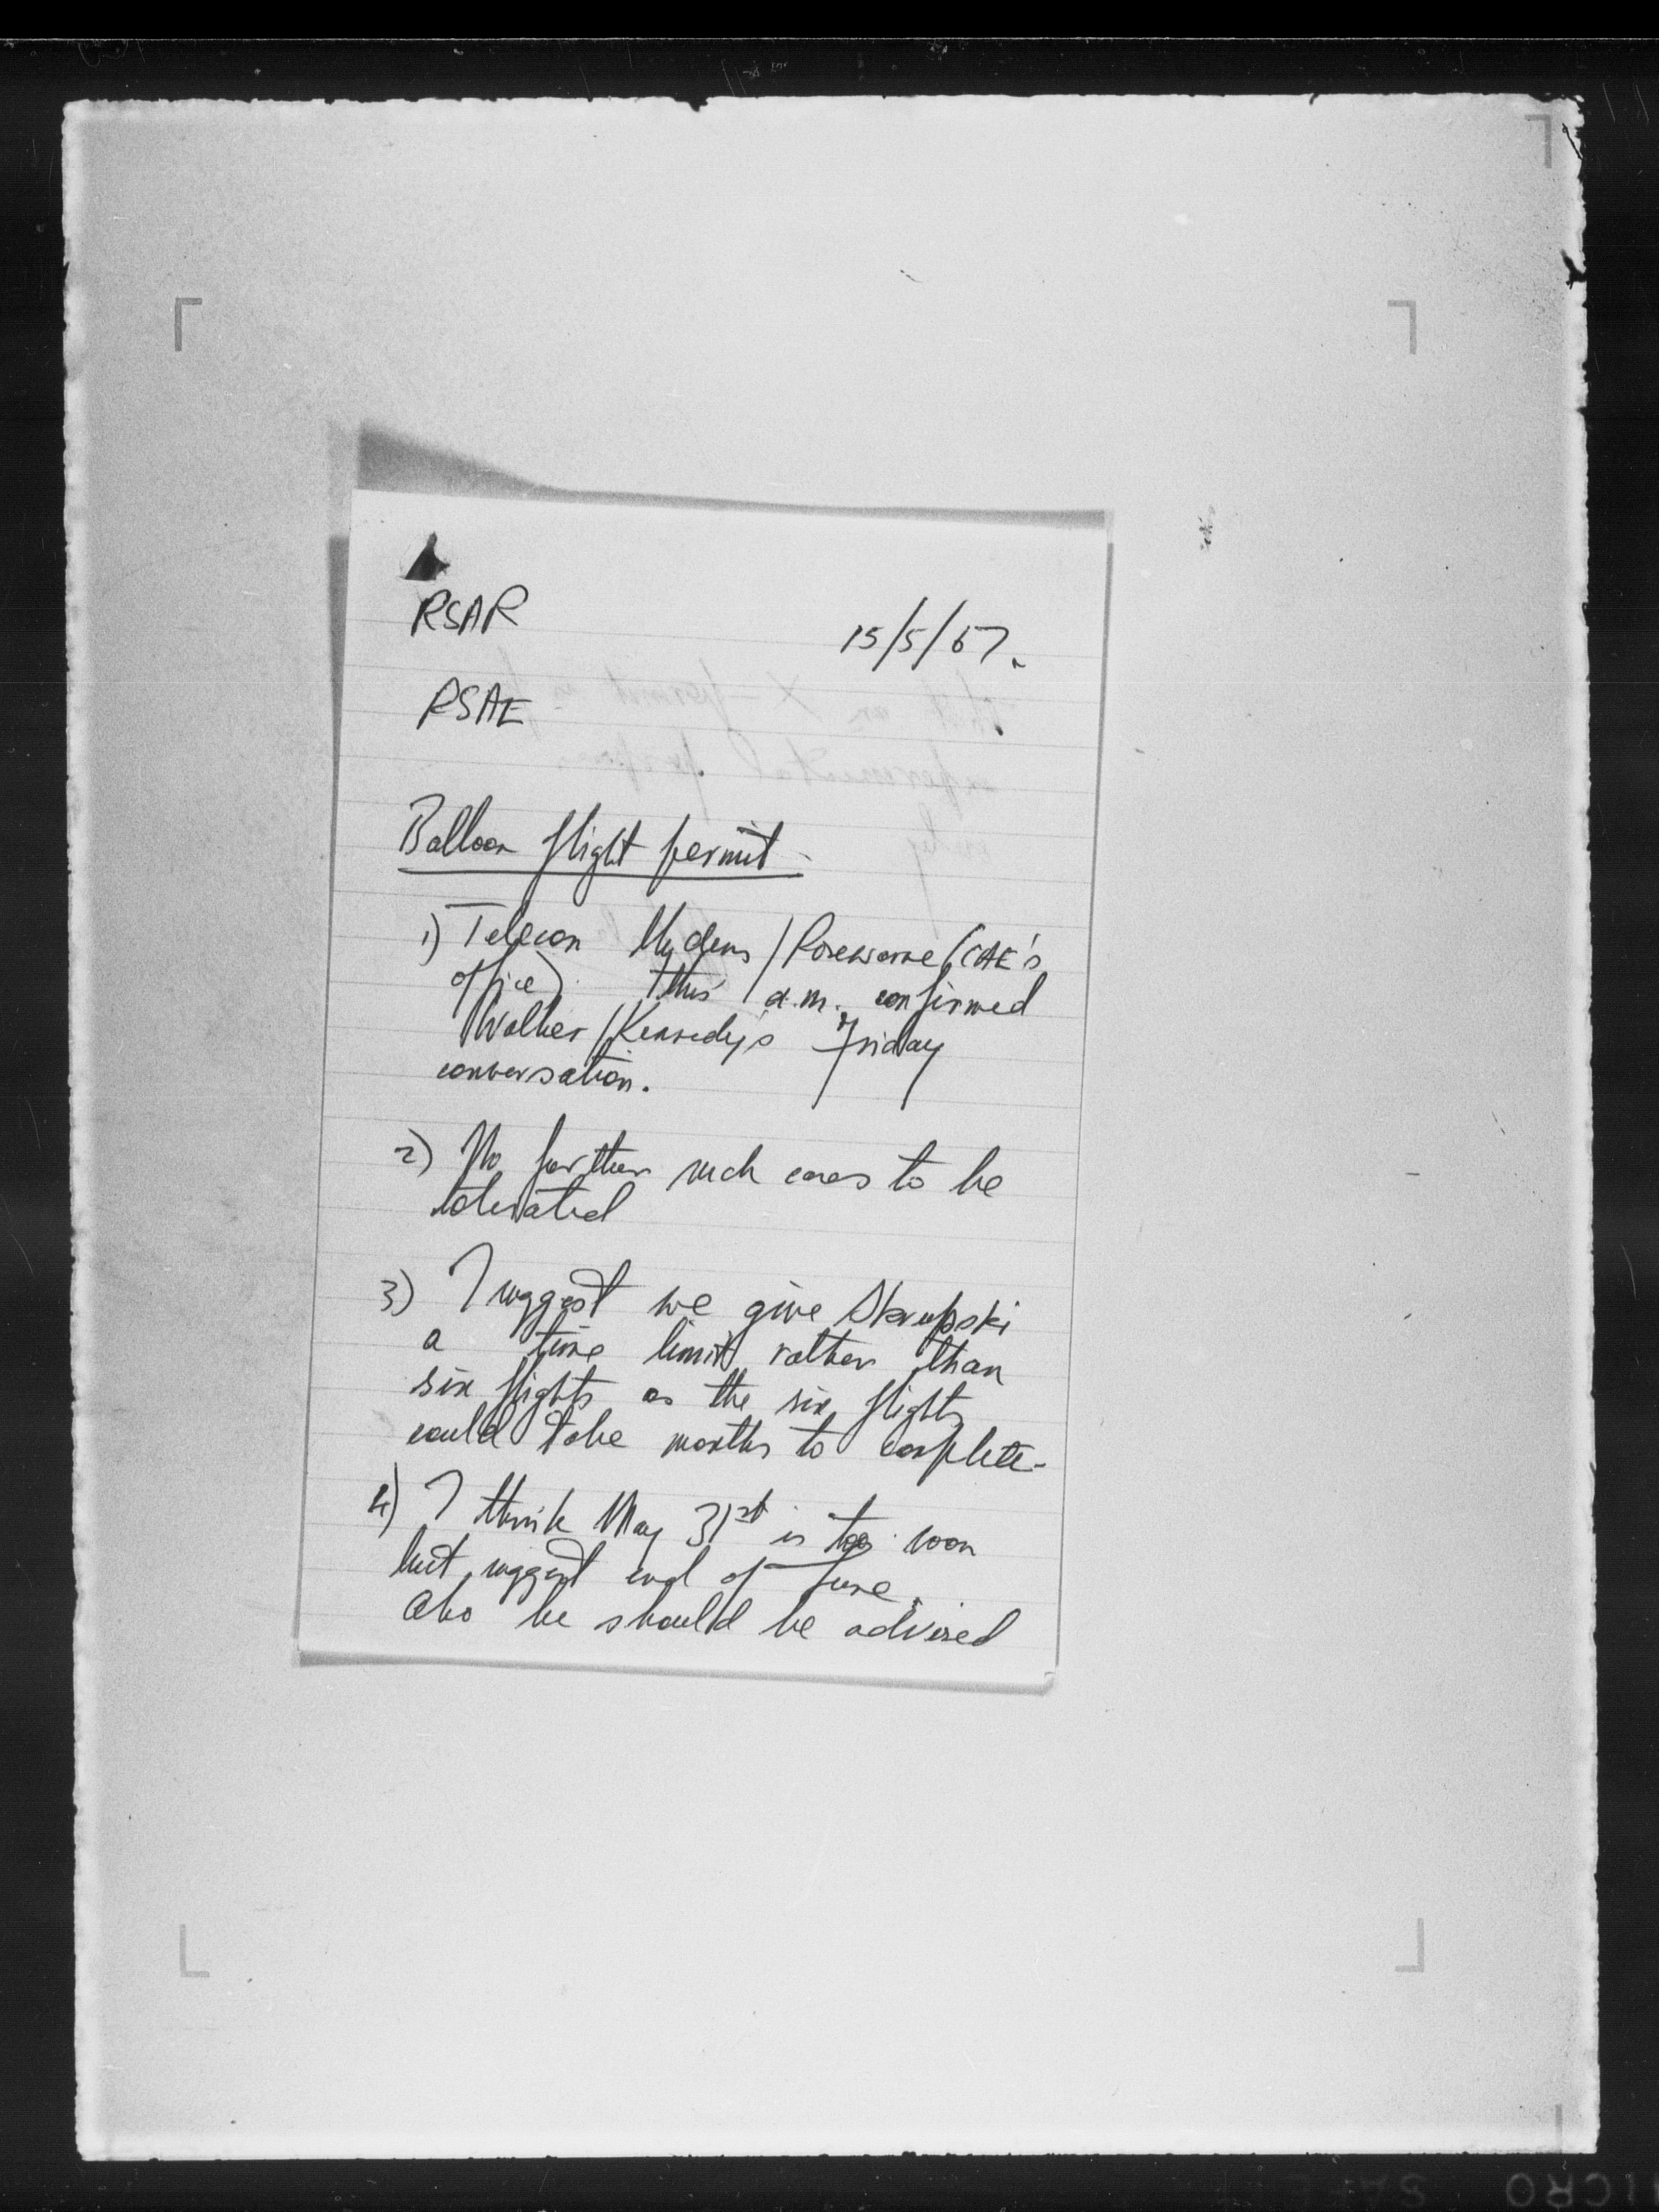 RSAR
15/5/67.
RSAE
Balloon flight permit
1) Telecon / Rosewarne (CAE's
office) this a.m. confirmed
Walker / Kennedy's Friday
conversation.
2) No further such cases to be
tolerated
3) I suggest we give Skrupski
a time limit rather than
six flights as the six flights
could take months to complete.
4) I think May 31st is too soon
but suggest end of June.
Also he should be advised